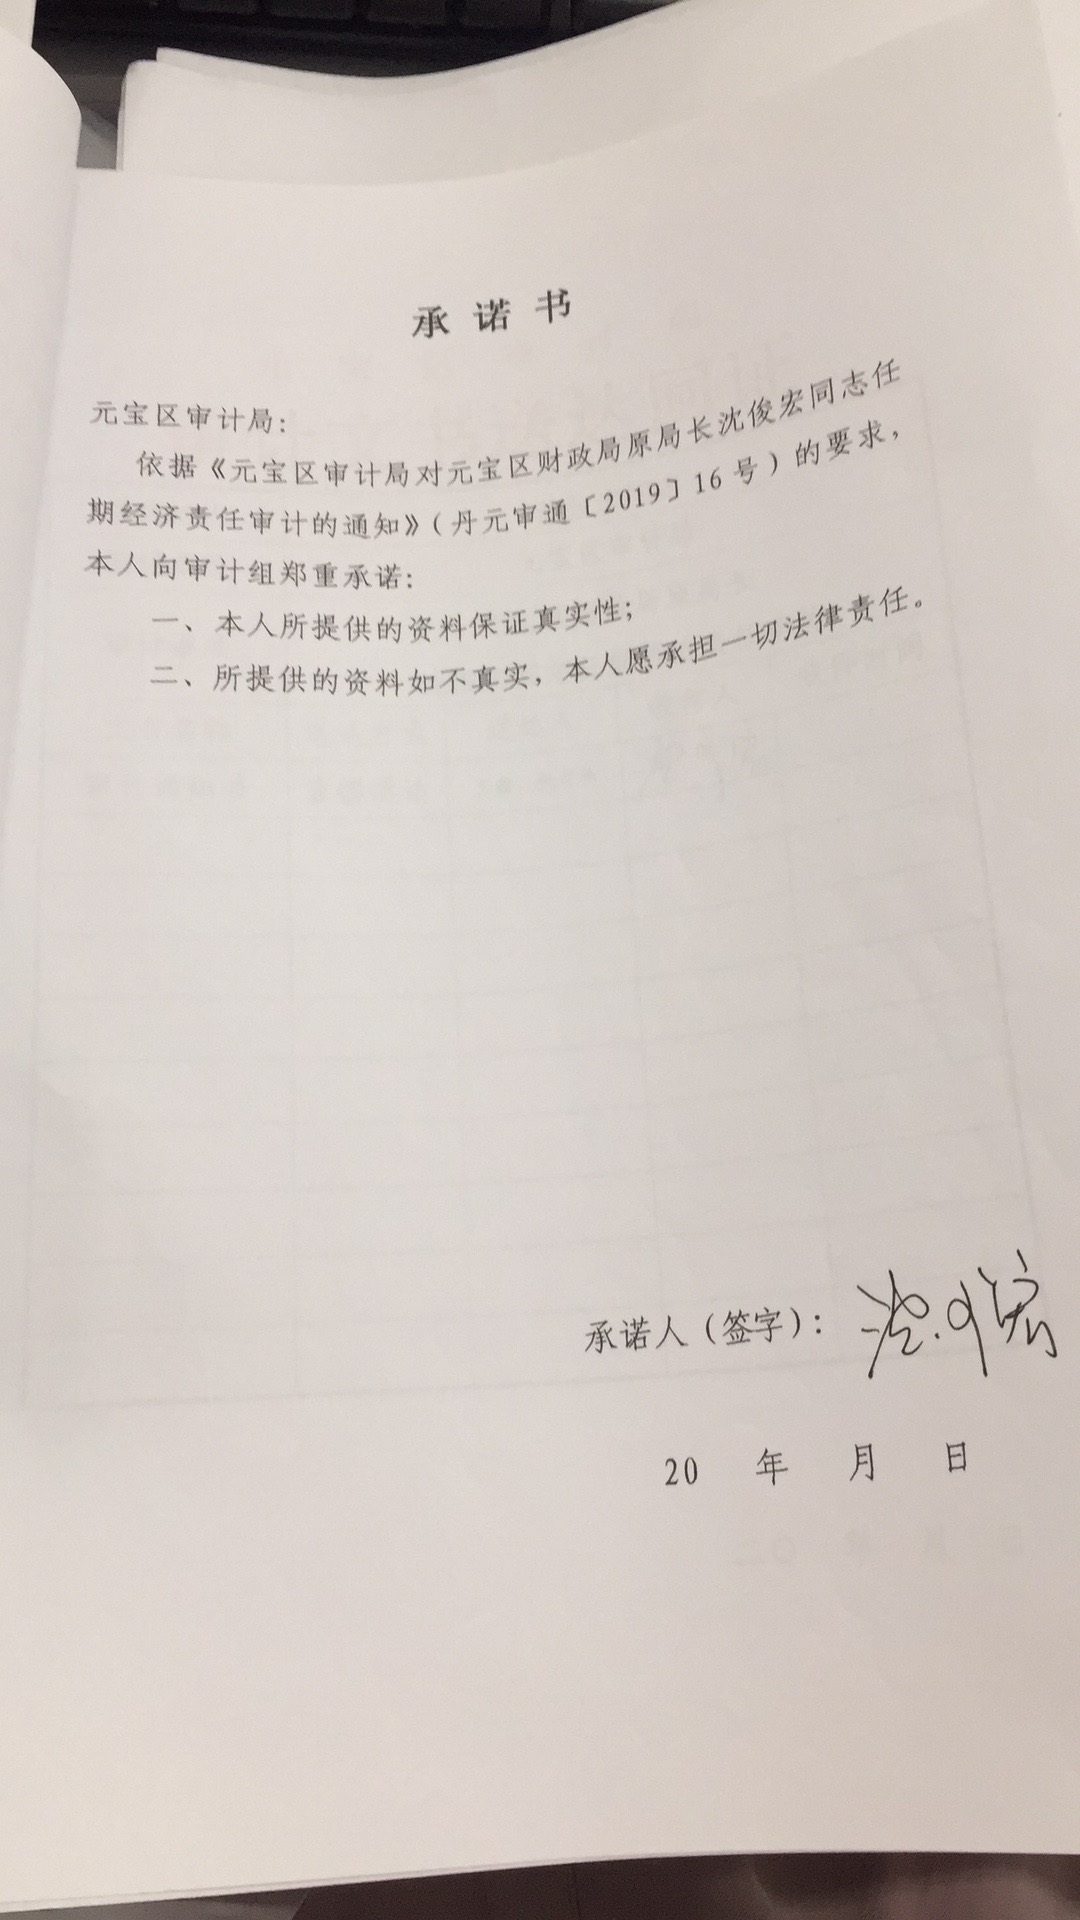 承诺书
元宝区审计局：
依据《元宝区审计局对元宝区财政局原局长沈俊宏同志任
期经济责任审计的通知》（丹元审通〔2019〕16号）的要求，
本人向审计组郑重承诺：
一、本人所提供的资料保证真实性；
二、所提供的资料如不真实，本人愿承担一切法律责任。
承诺人（签字）：
20 年 月 日